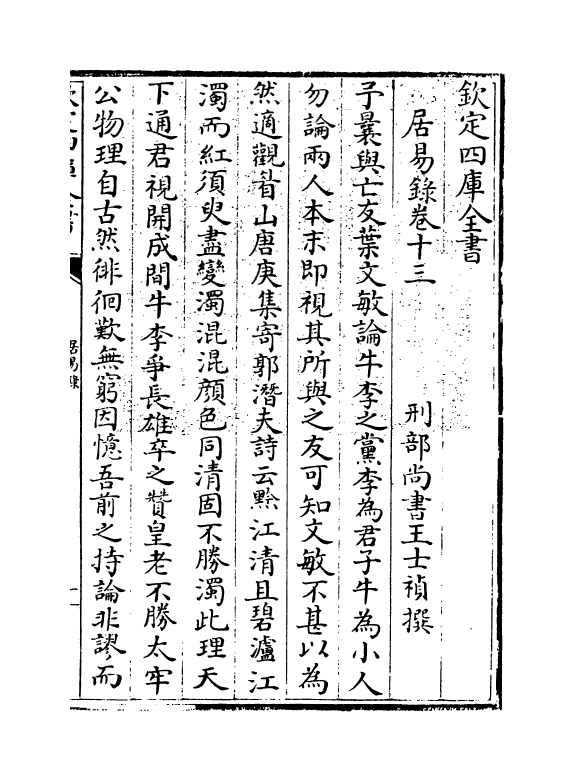 欽定四庫全書
居易錄卷十三
刑部尚書王士禎撰
予曩與亡友葉文敏論牛李之黨李為君子牛為小人
勿論兩人本末即視其所與之友可知文敏不甚以為
然適觀眉山唐庚集寄郭潛夫詩云黔江清且碧瀘江
濁而紅須臾盡變濁混混顔色同清固不勝濁此理天
下通君視開成間牛李爭長雄卒之贊皇老不勝太牢
公物理自古然徘徊歎無窮因憶吾前之持論非謬而
居易錄
一